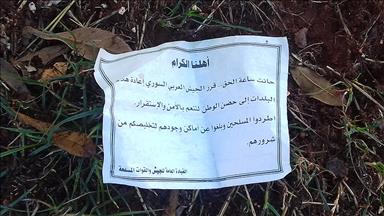 أهلنا الكرام
حانت ساعة الحق.. قرر الجيش العربي السوري إعادة هذه
البلدات إلى حضن الوطن لتنعم بالأمن والاستقرار.
اطردوا المسلحين وبلغوا عن أماكن وجودهم لتخليصكم من
شرورهم.
القيادة العامة للجيش والقوات المسلحة